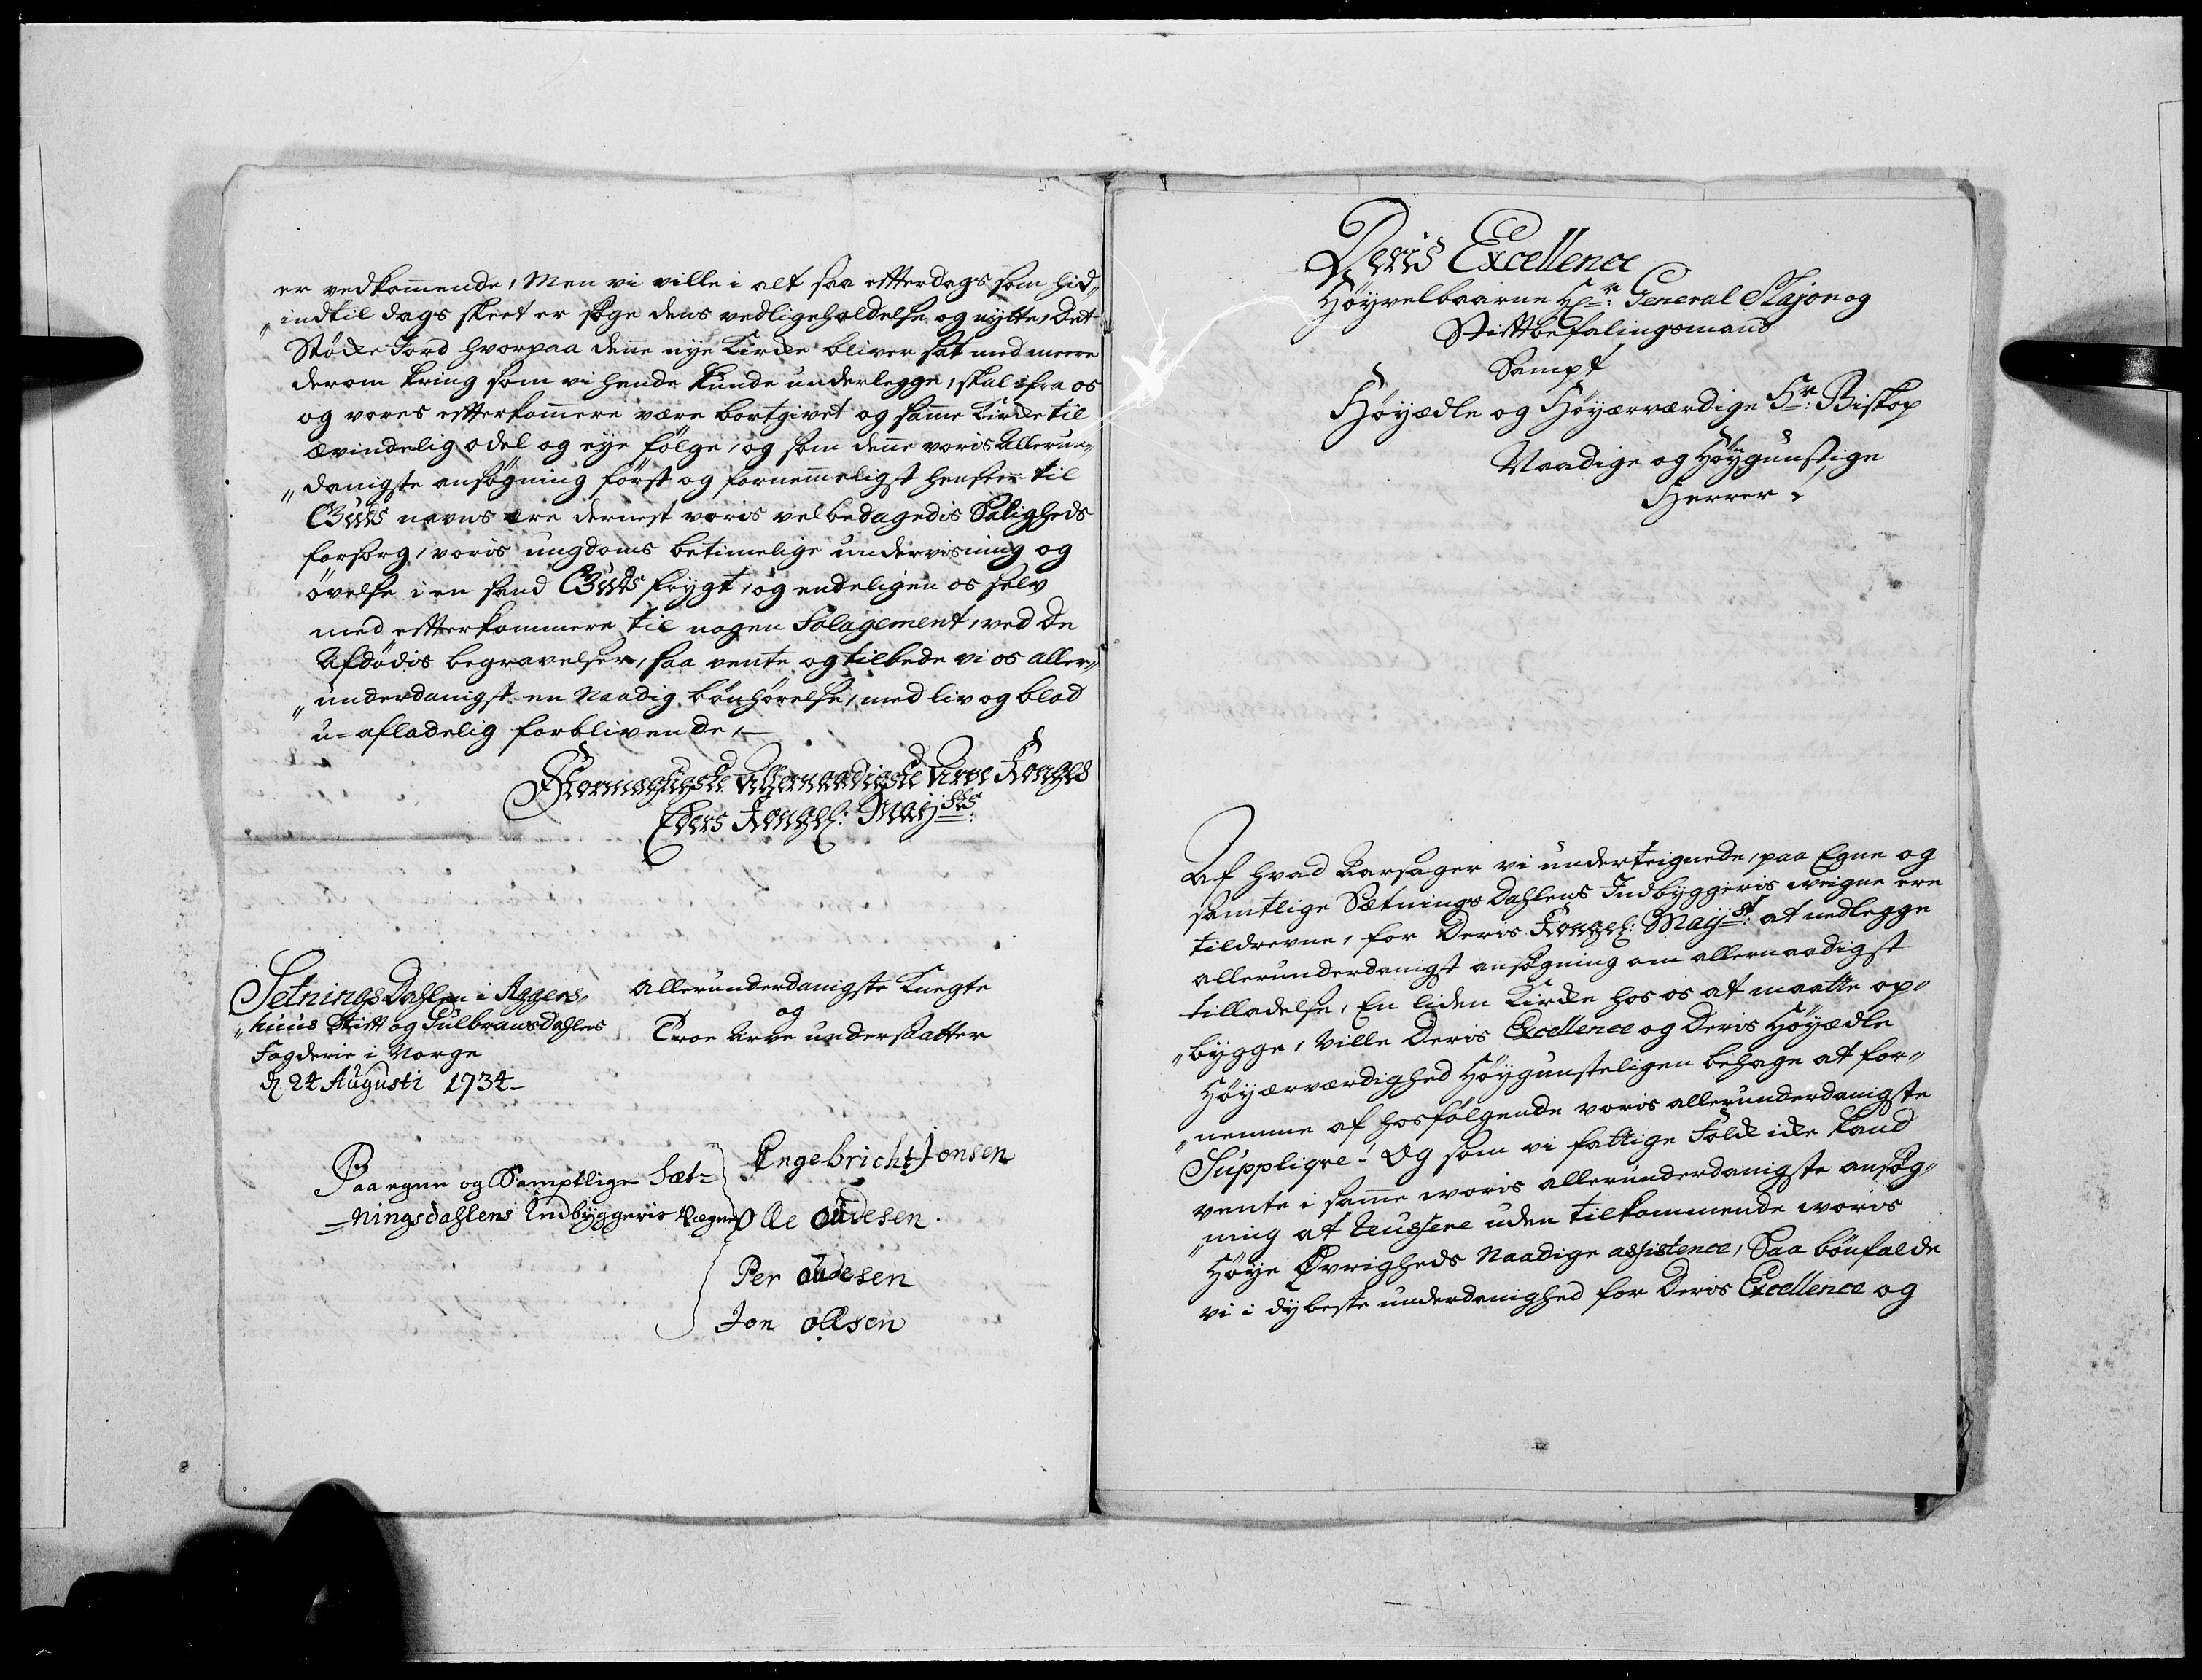 er vedkom̄ende, Men vi ville i alt saa efterdags som hid„
„indtil dags skeet er søge dens vedligeholdelse og nytte, Det
Støcke Jord hvorpaa den̄e nye Kircke bliver sat med meere
derom kring som vi hende kunde underlegge, skal ifra os
og vores efterkom̄ere være bortgivet og sam̄e Kircke til
ævindelig odel og eye følge, og som den̄e voris Allerun„
„danigste ansøgning først og fornem̄eligst henseer til
Guds navns ære dernest voris velbedagedis Saligheds
forsorg, voris ungdoms betimelige underviisning og
øvelse i en sand Guds frygt, og endeligen os selv
med efterkommere til nogen Solagement, ved De
Afdødis begravelser, saa vente og tilbede vi os aller„
„underdanigst en Naadig bønhørelse, med liv og blod
u-afladelig forblivende,
Stormægtigste Allernaadigste Arve Konges
Eders Kongel: Mayj<sup>sts</sup>:
Setnings Dahlen i Aggers„
„huus Stift og Gulbransdahlens
Fogderie i Norge
d 24 Augusti 1734
allerunderdanigste Knegte
og
Troe Arve undersaatter
Paa egne og Samptlige Sæt=
ningsdahlens Indbyggeris Vegne
Engebricht Jonsen
Ole oudesen.
Per oudesen
Jon ollsen
Deris Excellence
Høyvelbaarne H<sup>r</sup>: General Major og
Stiftbefalingsmand
Sampt
Høyædle og Høyærværdige H<sup>r</sup>: Biskop
Naadige og Høygunstige
Herrer
Af hvad Aarsager vi underteignede, paa Egne og
samtlige Sætnings Dahlens Indbyggeris veigne ere
tildrevne, for Deris Kongel: Mayj<sup>st</sup>: at nedlegge
allerunderdanigst ansøgning om allernaadigst
tilladelse, En liden Kircke hos os at maatte op„
„bygge, Ville Deris Excellence og Deris Høyædle
Høyærværdighed Høygunsteligen behage at for„
„nemme af hosfølgende voris allerunderdanigste
Suppliqve! Og som vi fattige Folck icke kand
vente i sam̄e voris allerunderdanigste ansøg„
„ning at reussere uden tilkommende voris
Høye Øvrigheds Naadige assistence, Saa bønfalde
vi i dybeste underdanighed for Deris Excellence og